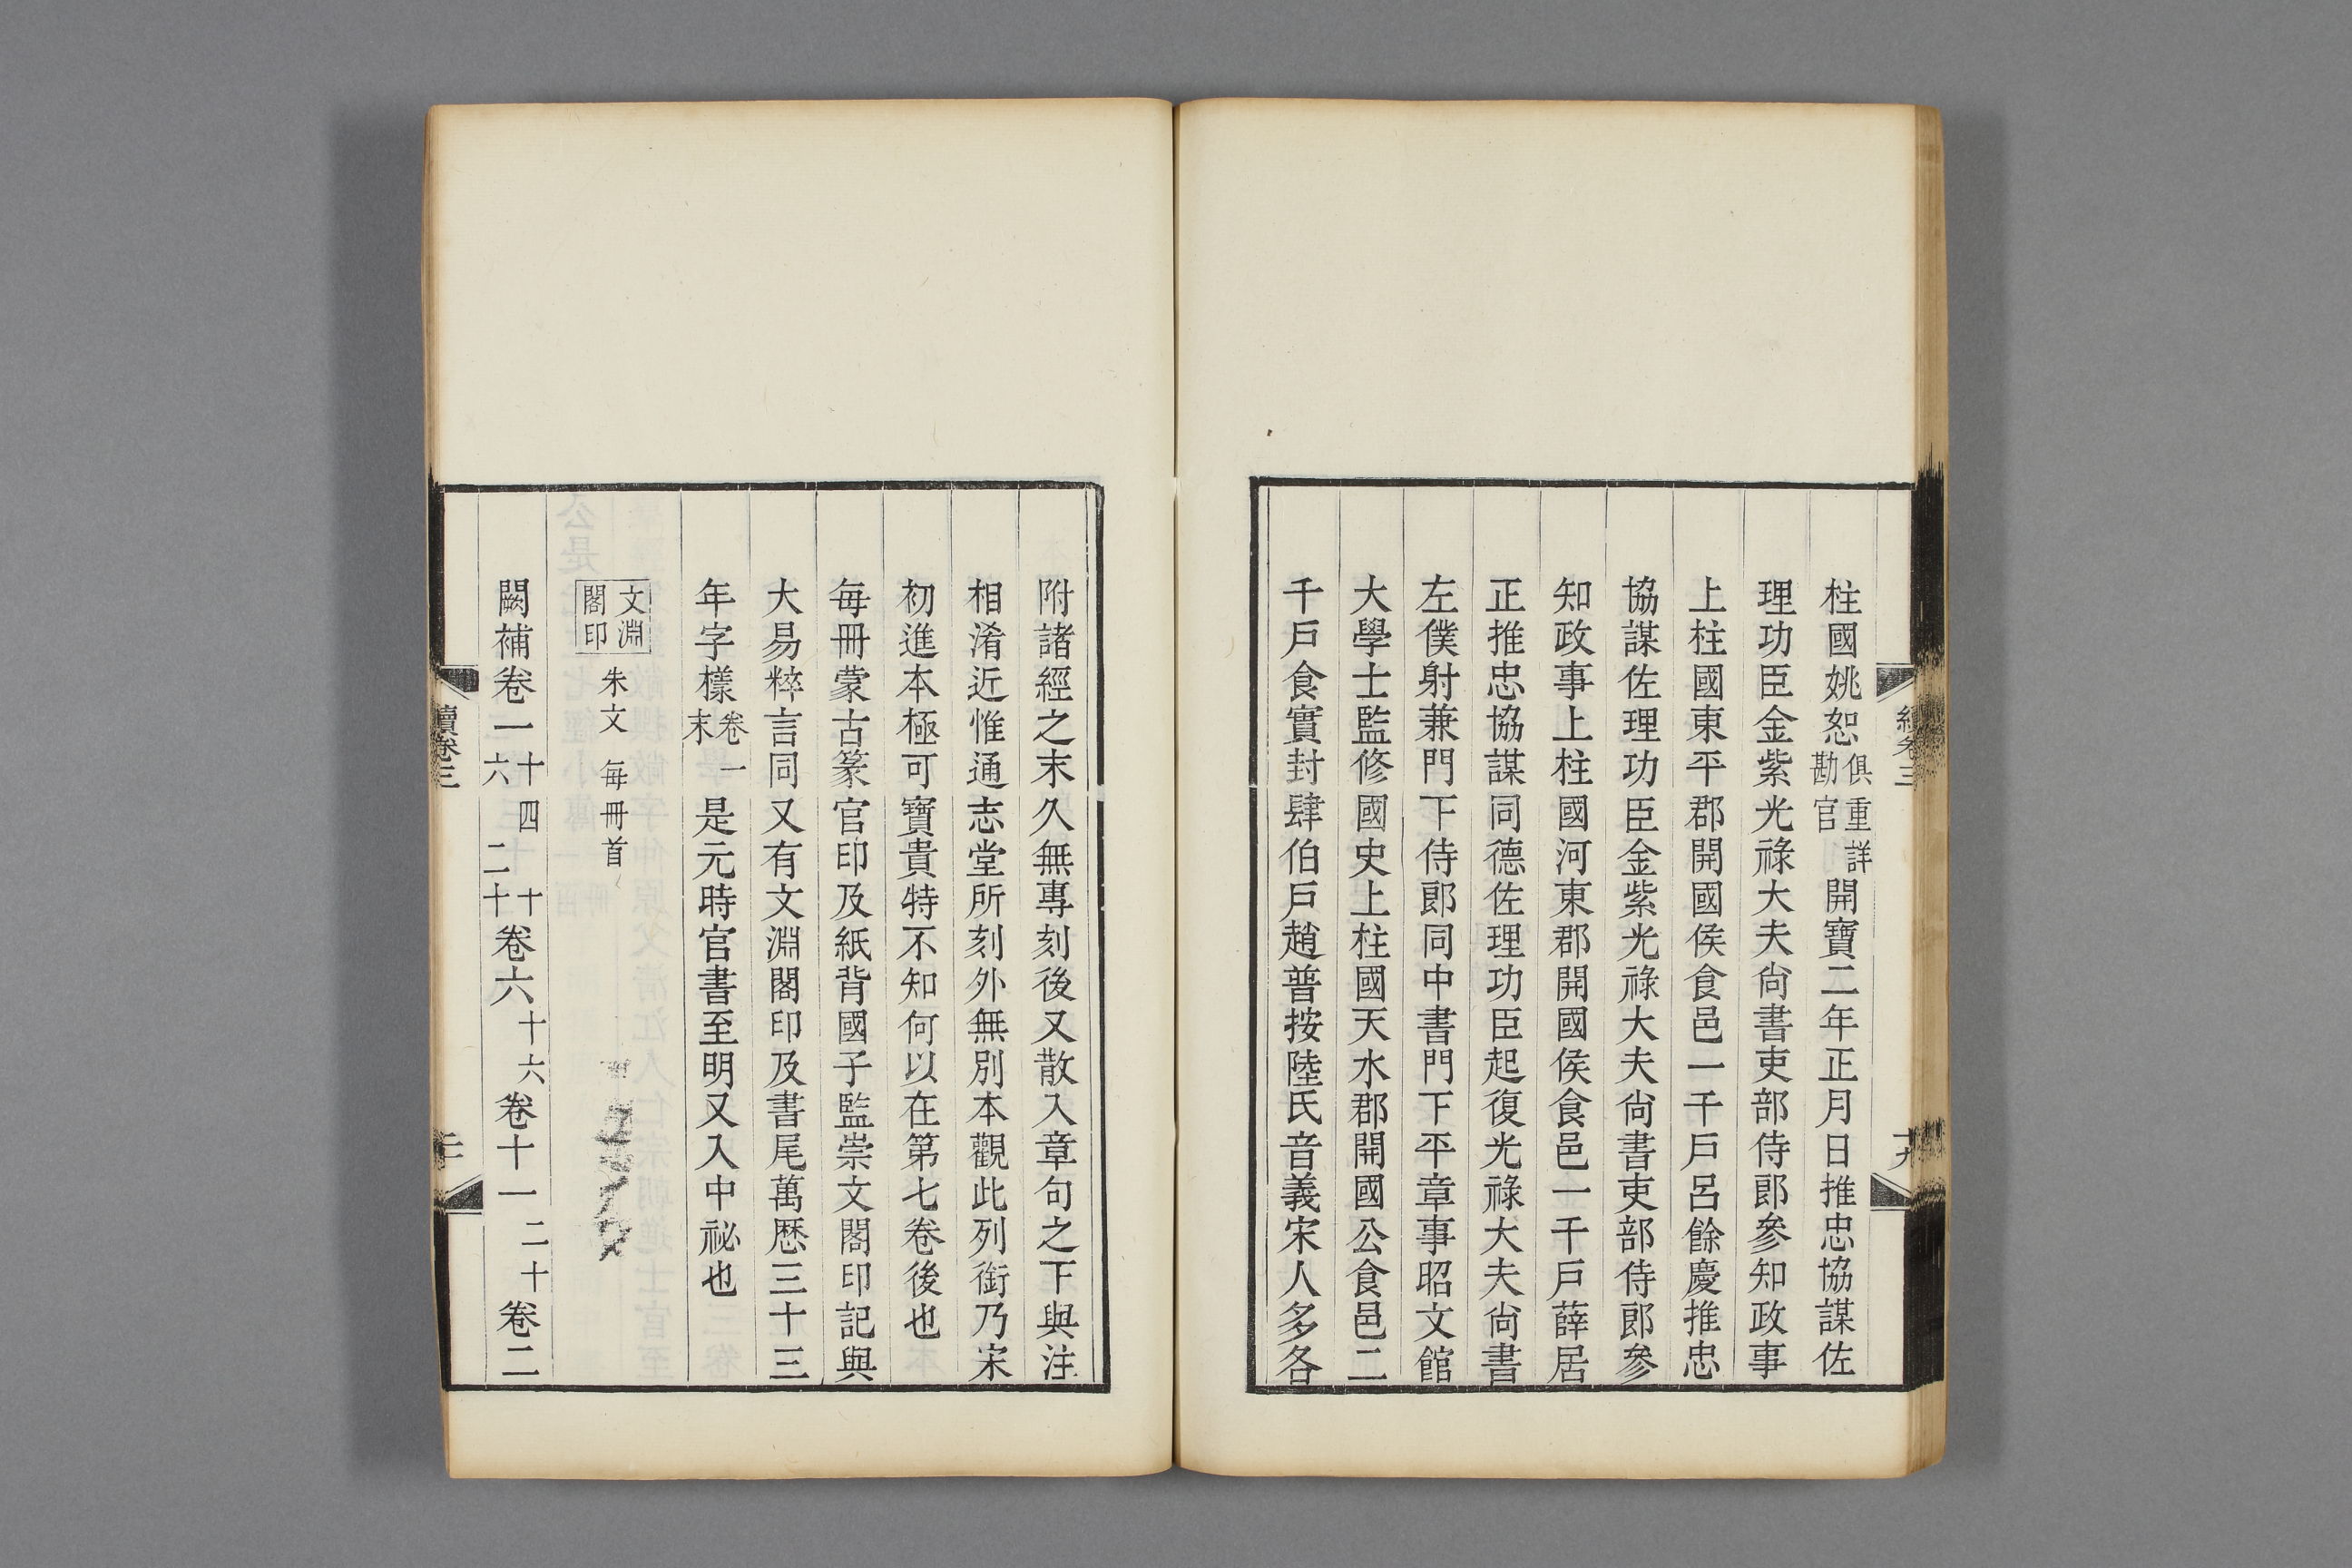 柱國姚恕俱重詳勘官開寶二年正月日推忠協謀佐
理功臣金紫光祿大夫尙書吏部侍郎參知政事
上柱國東平郡開國侯食邑一千戶呂餘慶推忠
協謀佐理功臣金紫光祿大夫尙書吏部侍郎參
知政事上柱國河東郡開國侯食邑一千戶薛居
正推忠協謀同德佐理功臣起復光祿大夫尙書
左僕射兼門下侍郎同中書門下平章事昭文館
大學士監修國史上柱國天水郡開國公食邑二
千戶食實封肆伯戶趙普按陸氏音義宋人多各
附諸經之末久無專刻後又散入章句之下與注
相淆近惟通志堂所刻外無別本觀此列銜乃宋
初進本極可寶貴特不知何以在第七卷後也
每冊蒙古篆官印及紙背國子監崇文閣印記與
大易粹言同又有文淵閣印及書尾萬曆三十三
年字樣卷一末是元時官書至明又入中祕也
文淵閣印 朱文 每冊首
闕補卷一十四十六二十卷六十六卷十一二十卷二
續卷三
十九
續卷三
二十